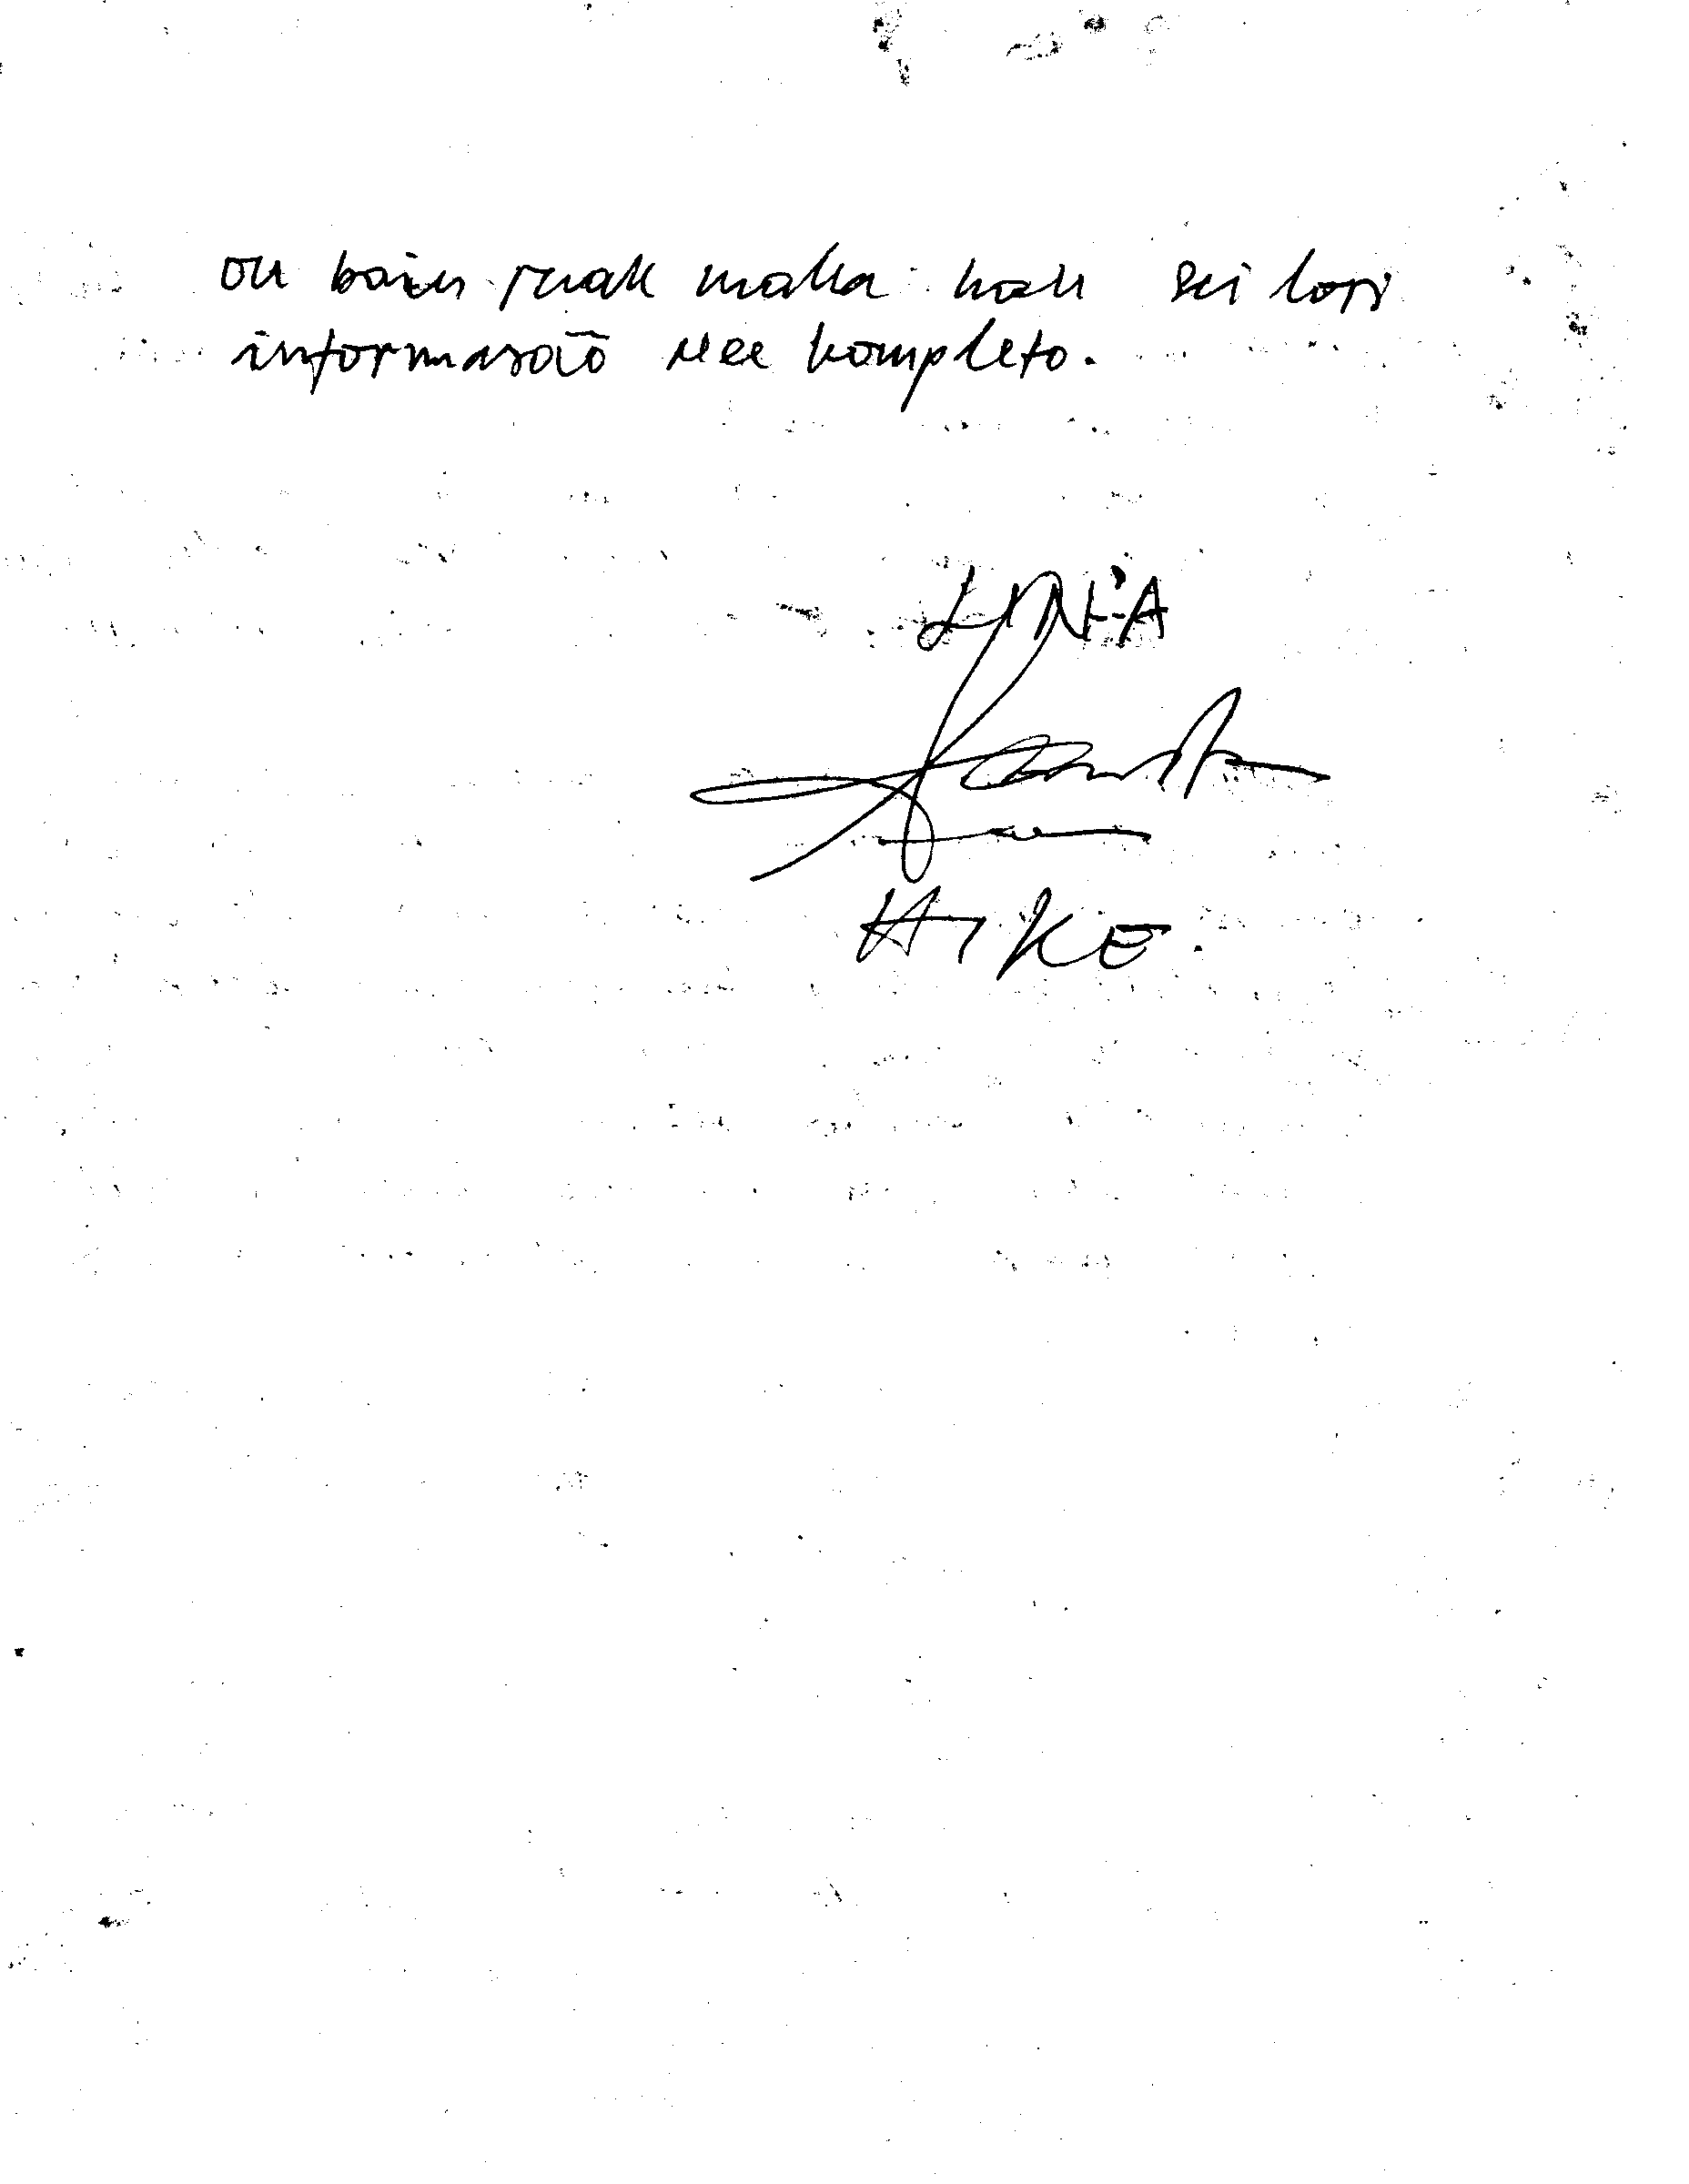 ou bain ruak maka hau sei lori
informasaõ nee kompleto.
LINE'A
HIKE